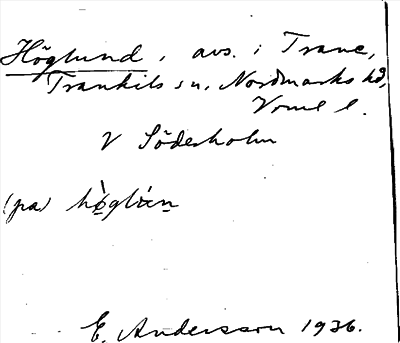 Höglund, avs. i Trane,
Trankils sn, Nordmarks hd,
Vrml l.
V Söderholm
(på) hò̤glún
E. Andersson 1936.